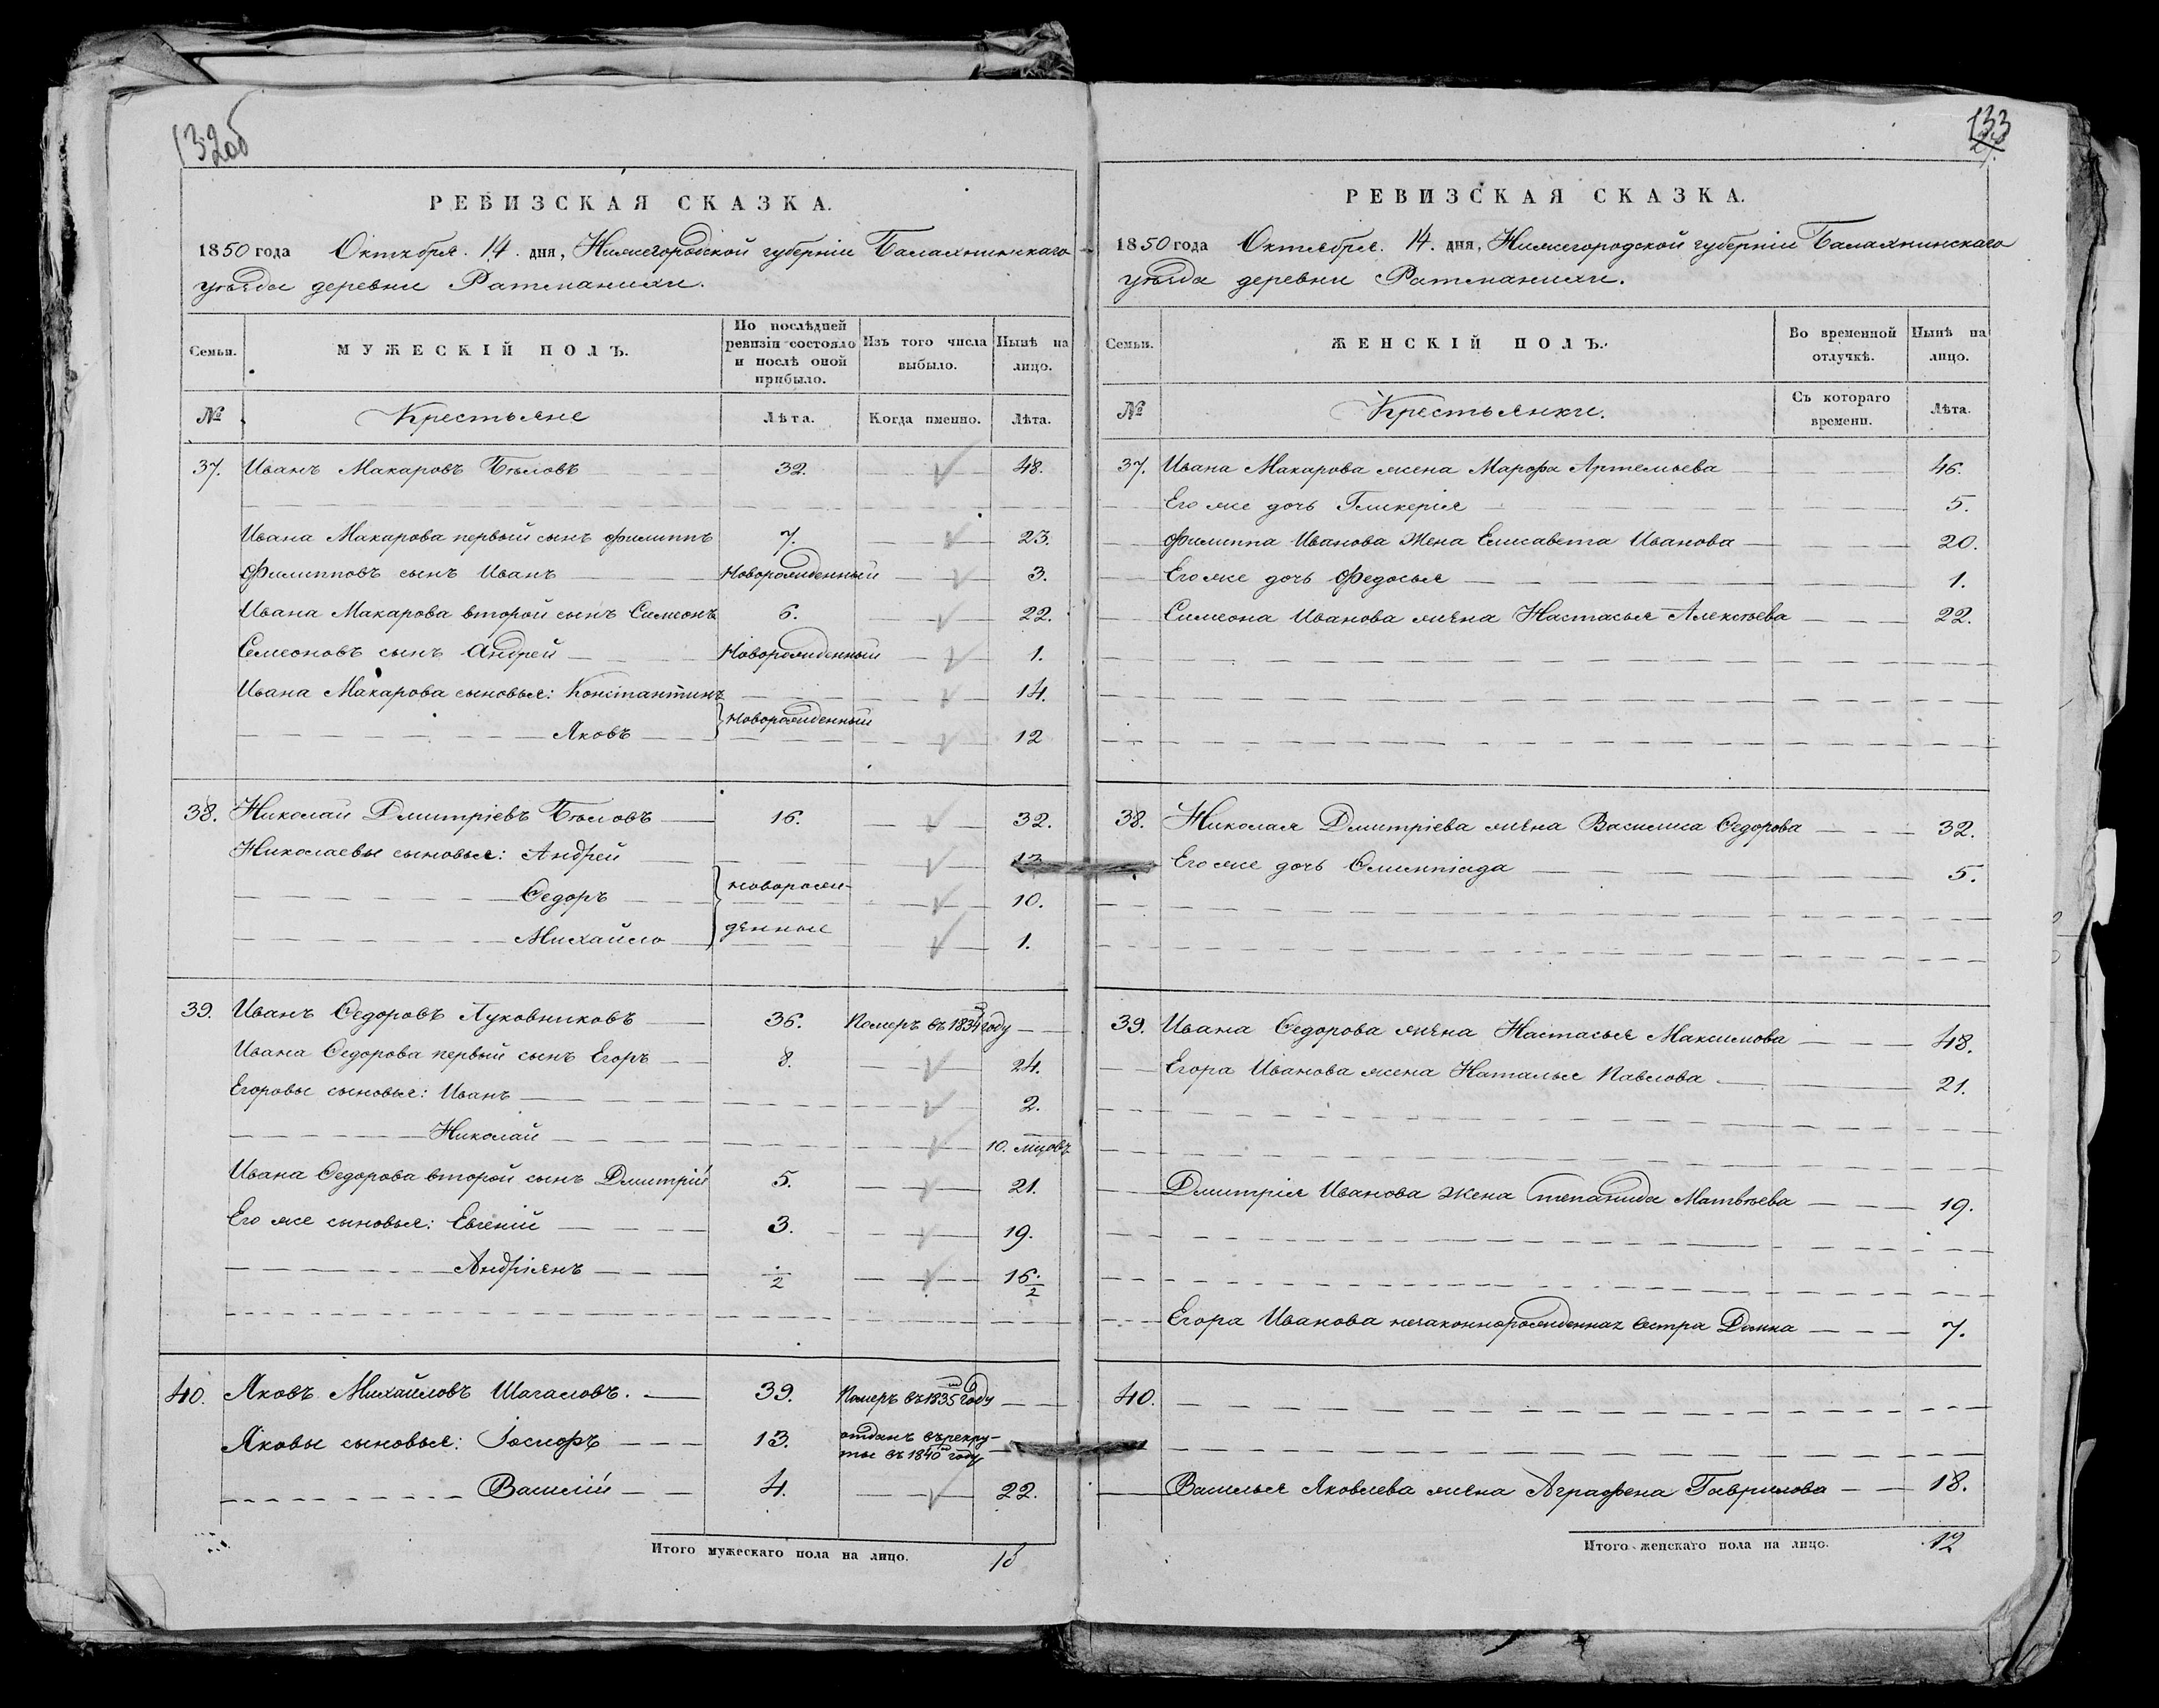 132об
РЕВИЗСКАЯ СКАЗКА.
1850 года Октября 14 дня, Нижегородской губерніи Балахнинскаго
уѣзда деревни Ратманихи.
Семьи. МУЖЕСКІЙ ПОЛЪ. По послѣдней ревизіи состояло и послѣ оной прибыло. Изъ того числа выбыло. Нынѣ на лицо.
№ Крестьяне Лѣта. Когда именно. Лѣта.
37. Иванъ Макаровъ Бѣловъ 32. 48.
Ивана Макарова первый сынъ Филиппъ 7. 23.
Филипповъ сынъ Иванъ Новорожденный 3.
Ивана Макарова второй сынъ Симеонъ 6. 22.
Семеоновъ сынъ Андрей Новорожденный 1.
Ивана Макарова сыновья: Константинъ 14.
новорожденный
Яковъ 12
38. Николай Дмитріевъ Бѣловъ 16. 32.
Николаевы сыновья: Андрей 13
Ѳедоръ новорож- 10.
Михайло денные 1.
39. Иванъ Ѳедоровъ Луковниковъ 36. Померъ въ 1834 году
Ивана Ѳедорова первый сынъ Егоръ 8. 24.
Егоровы сыновья: Иванъ 2.
Николай 10. мцовъ
Ивана Ѳедорова второй сынъ Дмитрій 5. 21.
Его же сыновья: Евгеній 3. 19.
Андріянъ ½ 16½
40. Яковъ Михайловъ Шагаловъ. 39. Померъ въ 1835 году
Яковы сыновья: Іосифъ 13. отданъ въ рекру-
ты въ 1840 году
Василій 4. 22.
Итого мужескаго пола на лицо. 18
133
РЕВИЗСКАЯ СКАЗКА.
1850 года Октября 14. дня, Нижегородской губерніи Балахнинскаго
уѣзда деревни Ратманихи.
Семьи. ЖЕНСКІЙ ПОЛЪ. Во временной отлучкѣ. Нынѣ на лицо.
№ Крестьянки. Съ котораго времени. Лѣта.
37. Ивана Макарова жена Марфа Артемьева 46.
Его же дочь Гликерія 5.
Филиппа Иванова Жена Елисавета Иванова 20.
Его же дочь Федосья 1.
Симеона Иванова жена Настасья Алексѣева 22.
38. Николая Дмитріева жена Василиса Ѳедорова 32.
Его же дочь Олимпіада 5.
39. Ивана Ѳедорова жена Настасья Максимова 48.
Егора Иванова жена Наталья Павлова 21.
Дмитрія Иванова жена Степанида Матвѣева 19.
Егора Иванова незаконнорожденная сестра Домна 7.
40.
Василья Яковлева жена Аграфена Гаврилова 18.
Итого женскаго пола на лицо. 12